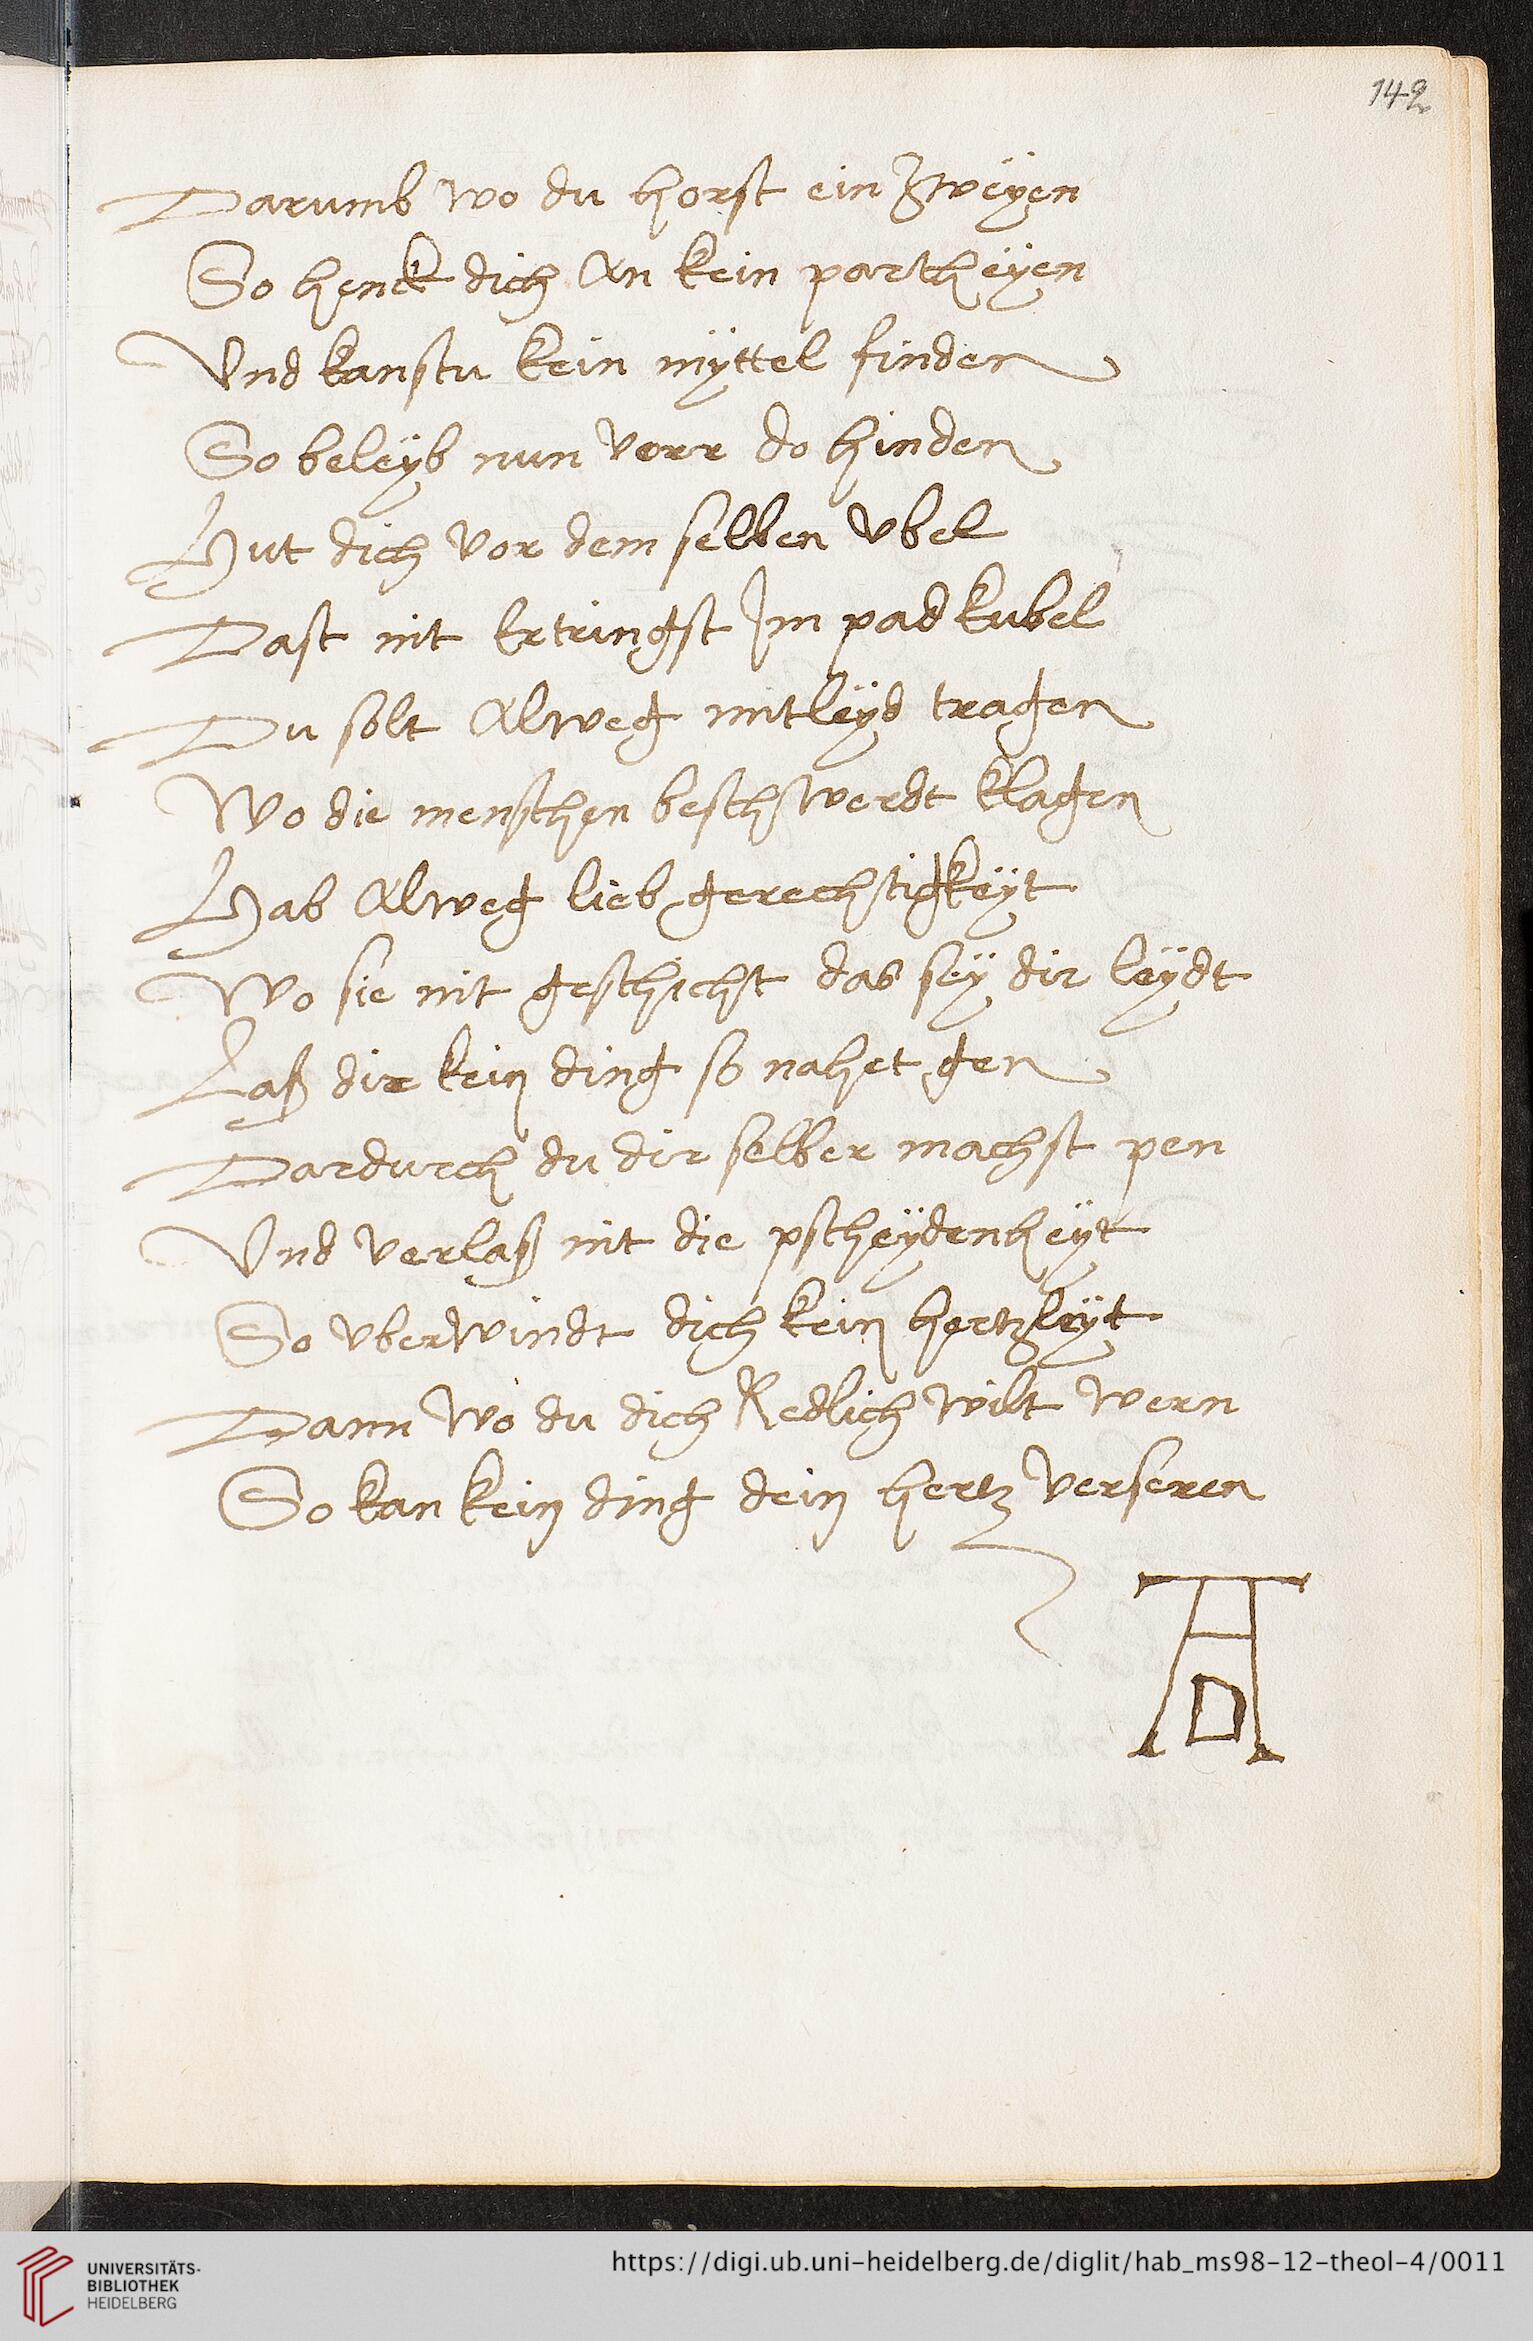 142
Darumb wo du horst ein Zweÿen
So henck dich An kein partheÿen
Vnd kanstu kein mÿttel finden
So beleÿb nun verr do hinden
Hut dich vor dem selben vbel
Dast nit Ertringst Im padkubel
Du solt Alweg mitleÿd tragen
Wo die menschen beschwerdt klagen
Hab Alweg lieb gerechtigkeÿt
Wo sie nit geschicht das seÿ dir leÿdt
Laß dir kein ding so nahet gen
Dardurch du dir selber machst pen
Vnd verlaß nit die pscheÿdenheÿt
So vberwindt dich kein hertzleÿt
Dann wo du dich Redlich wilt wern
So kan kein ding dein hertz verseren
AD
UNIVERSITÄTS-
BIBLIOTHEK
HEIDELBERG
https://digi.ub.uni-heidelberg.de/diglit/hab_ms98-12-theol-4/0011